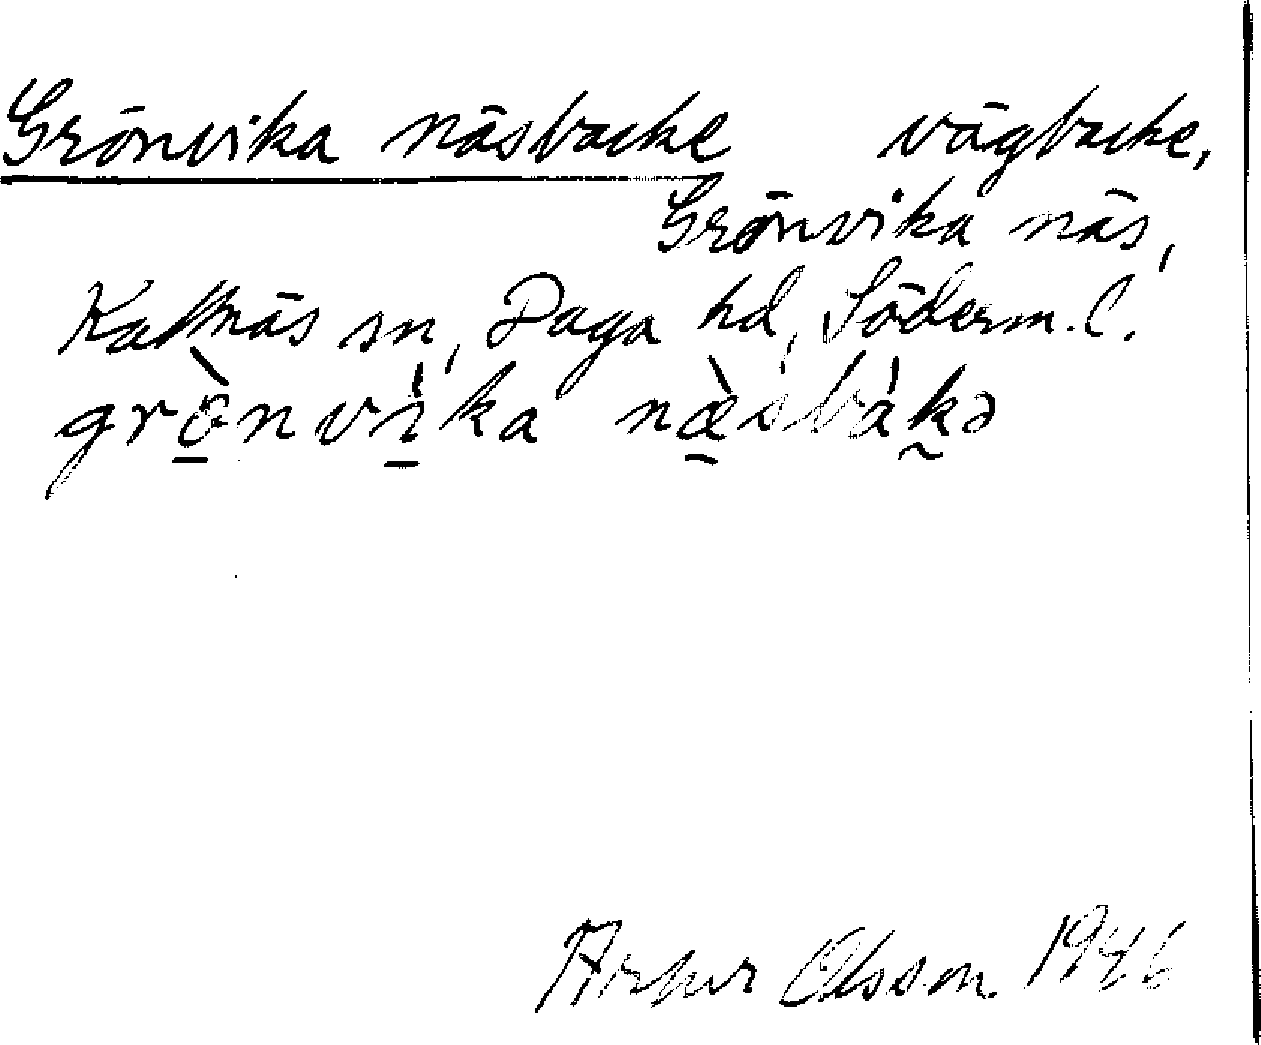 Grönvika näsbacke vägbacke,
Grönvika näs,
Kattnäs sn, Daga hd, Söderm. l.
grö̀nvì̀ka næ̀sbák̰ə
Artur Olsson 1946